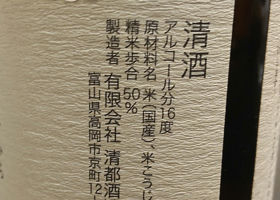 清酒
アルコール分16度
原材料名 米(国産)、米こうじ
精米歩合 50%
製造者 有限会社 清都酒
富山県高岡市京町12